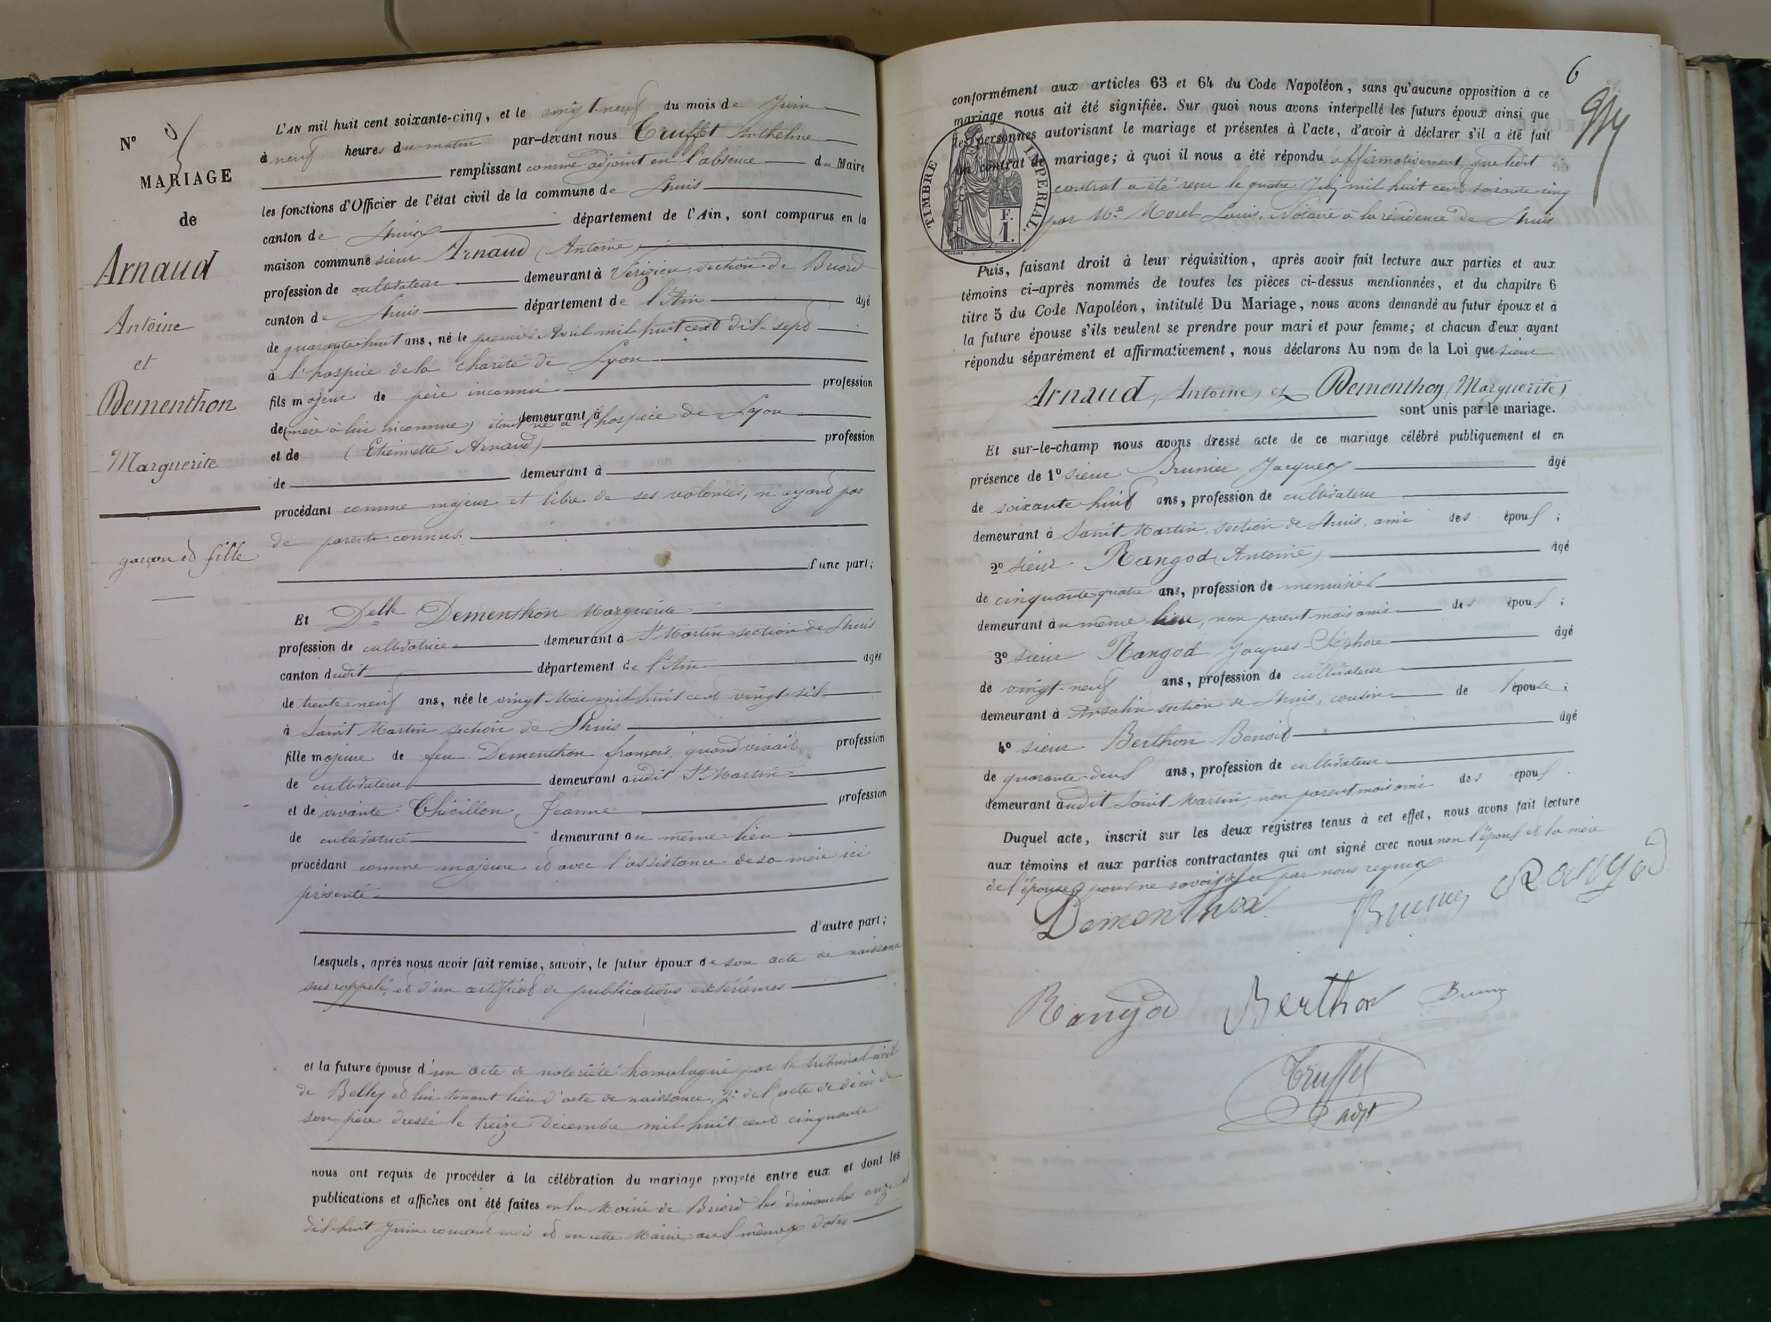 Nº 5
MARIAGE
de
Arnaud
Antoine
et
Dementhon
Marguerite
garçon et fille
L'AN mil huit cent soixante-cinq, et le vingt neuf du mois de Juin
à neuf heures du matin par-devant nous Truffet Anthelme
remplissant comme adjoint en l'absence du Maire
les fonctions d'Officier de l'état civil de la commune de Lhuis
canton de Lhuis département de l'Ain, sont comparus en la
maison commune sieur Arnaud (Antoine)
profession de cultivateur demeurant à Vérizieu section de Briord
canton de Lhuis département de l'Ain âgé
de quarante huit ans, né le premier Avril mil huit cent dix-sept
à l'hospice de la Charité de Lyon
fils majeur de père inconnu profession
de (mère à lui inconnue) étant né à demeurant à l'hospice de Lyon
et de (Etiennette Arnaud) profession
de demeurant à
procédant comme majeur et libre de ses volontés, n'ayant pas
de parents connus.
d'une part;
Et Delle Dementhon Marguerite
profession de cultivatrice demeurant à St Martin section de Lhuis
canton dudit département de l'Ain âgée
de trente neuf ans, née le vingt Mai mil huit cent vingt-six
à Saint Martin section de Lhuis
fille majeure de feu Dementhon françois, quand vivait profession
de cultivateur demeurant audit St Martin
et de vivante Jeanne profession
de cultivatrice demeurant au même lieu
procédant comme majeure et avec l'assistance de sa mère ici
présente
d'autre part;
Lesquels, après nous avoir fait remise, savoir, le futur époux de son acte de naissance
sus rappelé, et d'un certificat de publications extérieures
et la future épouse d'un acte de notoriété homologué par le tribunal civil
de Belley et lui tenant lieu d'acte de naissance, 2º de l'acte de décès de
son père dressé le treize Décembre mil huit cent cinquante
nous ont requis de procéder à la célébration du mariage projeté entre eux et dont les
publications et affiches ont été faites en la Mairie de Briord les dimanches onze et
dix-huit Juin courant mois et en cette Mairie aux mêmes dates
6
conformément aux articles 63 et 64 du Code Napoléon, sans qu'aucune opposition à ce
mariage nous ait été signifiée. Sur quoi nous avons interpellé les futurs époux ainsi que
les personnes autorisant le mariage et présentes à l'acte, d'avoir à déclarer s'il a été fait
un contrat de mariage; à quoi il nous a été répondu affirmativement, que ledit
contrat a été reçu le quatre Juin mil huit cent soixante cinq
par Me Morel Louis, Notaire à la résidence de Lhuis
TIMBRE IMPERIAL.
1 F.
Puis, faisant droit à leur réquisition, après avoir fait lecture aux parties et aux
témoins ci-après nommés de toutes les pièces ci-dessus mentionnées, et du chapitre 6
titre 5 du Code Napoléon, intitulé Du Mariage, nous avons demandé au futur époux et à
la future épouse s'ils veulent se prendre pour mari et pour femme; et chacun d'eux ayant
répondu séparément et affirmativement, nous déclarons Au nom de la Loi que sieur
Arnaud, Antoine, et Dementhon (Marguerite)
sont unis par le mariage.
Et sur-le-champ nous avons dressé acte de ce mariage célébré publiquement et en
présence de 1º sieur Brunier Jacques âgé
de soixante huit ans, profession de cultivateur
demeurant à Saint Martin section de Lhuis, ami des époux;
2º sieur Rangod (Antoine) âgé
de cinquante quatre ans, profession de menuisier
demeurant au même lieu, non parent mais ami des époux;
3º sieur Rangod Jacques âgé
de vingt-neuf ans, profession de cultivateur
demeurant à section de Lhuis, cousin de l'épouse;
4º sieur Berthon Benoit âgé
de quarante-deux ans, profession de cultivateur
demeurant audit Saint Martin non parent mais ami des époux.
Duquel acte, inscrit sur les deux registres tenus à cet effet, nous avons fait lecture
aux témoins et aux parties contractantes qui ont signé avec nous non l'époux et la mère
de l'épouse pour ne savoir de ce par nous requis
Dementhon Brunier Rangod
Rangod Berthon
Truffet
adjt